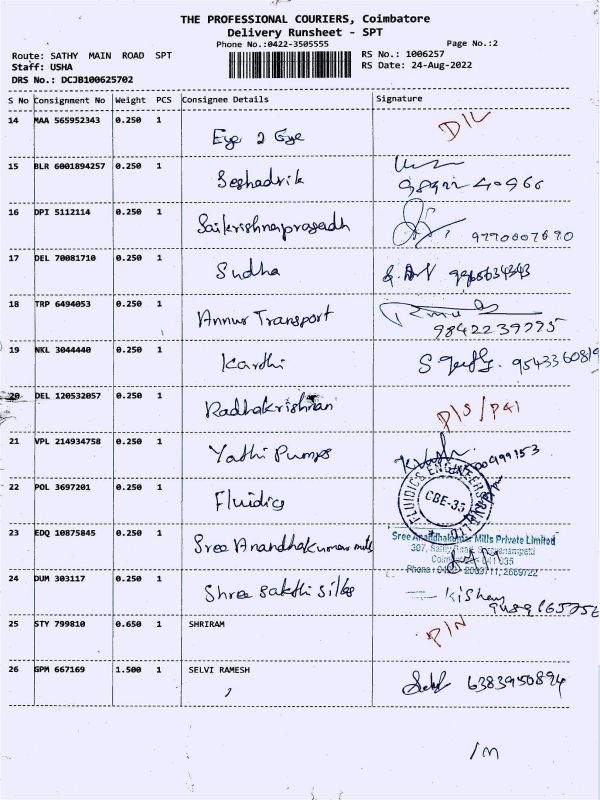 THE PROFESSIONAL COURIERS, Coimbatore
Delivery Runsheet - SPT
Phone No.:0422-3505555 Page No.:2
Route: SATHY MAIN ROAD SPT RS No.: 1006257
Staff: USHA RS Date: 24-Aug-2022
DRS No.: DCJB100625702
S No Consignment No Weight PCS Consignee Details Signature
14 MAA 565952343 0.250 1 Eye 2 Eye D/L
15 BLR 6001894257 0.250 1 Seshadrik
16 DPI 5112114 0.250 1 Saikrishnaprasadh 9790007690
17 DEL 70081710 0.250 1 Sudha
18 TRP 6494053 0.250 1 Annur Transport 9842239775
19 NKL 3044440 0.250 1 Karthi 9543360819
20 DEL 120532057 0.250 1 Radhakrishnan
21 VPL 214934758 0.250 1 Yathi Pumps
22 POL 3697201 0.250 1 Fluidics
FLUIDICS ENGINEERS
CBE-35
23 EDQ 10875845 0.250 1 Sree Anandhakumar mills
Sree Anandhakumar Mills Private Limited
24 DUM 303117 0.250 1 Shree Sakthi Silks
25 STY 799810 0.650 1 SHRIRAM P/N
26 GPM 667169 1.500 1 SELVI RAMESH 6383950894
/m